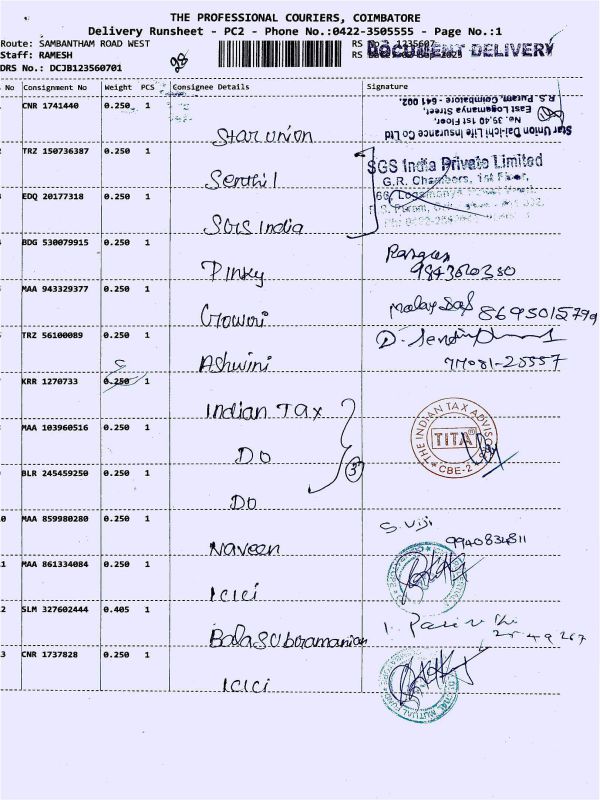 THE PROFESSIONAL COURIERS, COIMBATORE
Delivery Runsheet - PC2 - Phone No.:0422-3505555 - Page No.:1
Route: SAMBANTHAM ROAD WEST
Staff: RAMESH
DRS No.: DCJB123560701
DOCUMENT DELIVERY
No Consignment No Weight PCS Consignee Details Signature
CNR 1741440 0.250 1 Star union
Star Union Dai-ichi Life Insurance Co Ltd
No. 39,40 1st Floor,
East Logamanya Street,
R.S. Puram, Coimbatore - 641 002.
TRZ 150736387 0.250 1 Senthil
SGS India Private Limited
G.R. Chambers, 1st Floor,
EDQ 20177318 0.250 1 SGS India
BDG 530079915 0.250 1 Pinky
MAA 943329377 0.250 1 Gowori
TRZ 56100089 0.250 1 Ashwini
77081-25557
KRR 1270733 0.250 1 Indian Tax
MAA 103960516 0.250 1 Do
THE INDIAN TAX ADVISOR
TITA
CBE-2
3
BLR 245459250 0.250 1 Do
MAA 859980280 0.250 1 Naveen
S. Viji
9940834811
MAA 861334084 0.250 1 ICICI
SLM 327602444 0.405 1 Balasubramanian
CNR 1737828 0.250 1 ICICI